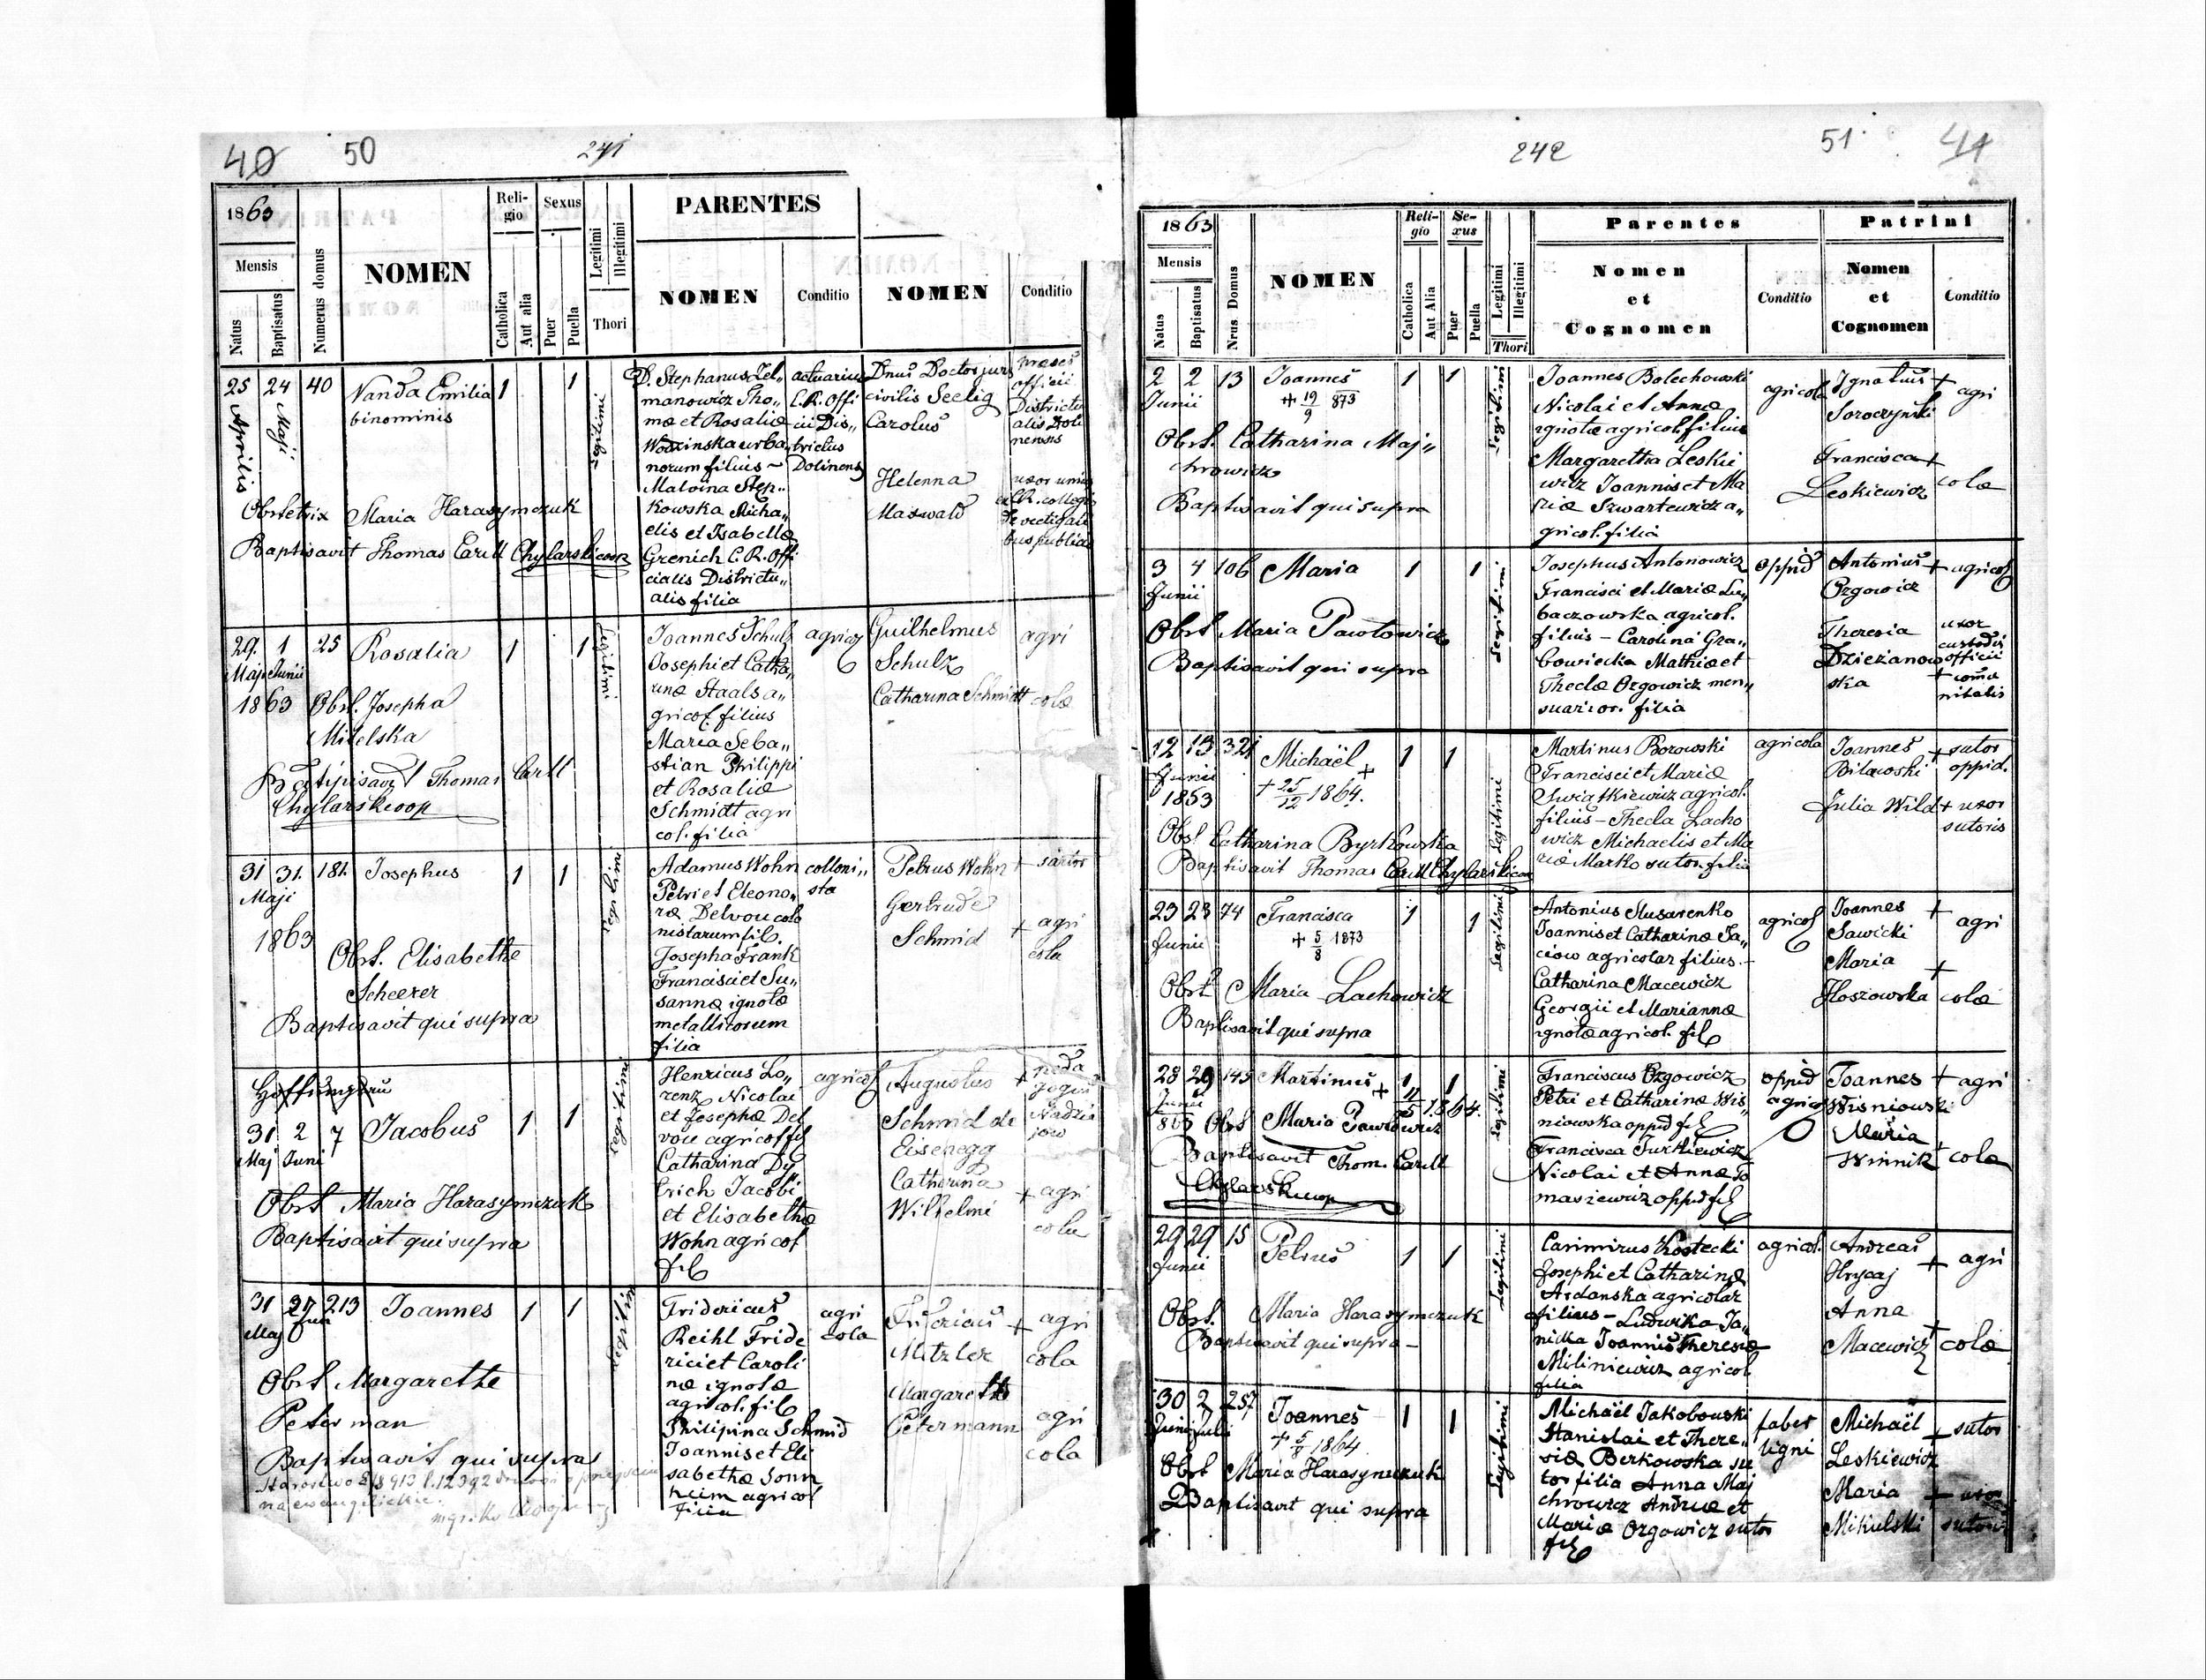 40 50 241
1863
Mensis
Natus
Baptisatus
Numerus domus
NOMEN
Religio
Catholica
Aut alia
Sexus
Puer
Puella
Legitimi
Illegitimi
Thori
PARENTES
NOMEN
Conditio
NOMEN
Conditio
25 Aprilis 24 Maji 40 Vanda Emilia 1 1
binominis
Legitimi
D. Stephanus Zel„
manowicz Tho„
mæ et Rosaliæ
Wodzinska urba„
norum filius ~
Malvina Step„
kowska Micha„
elis et Isabellæ
Grenich C. R. Offi
cialis Districtu„
alis filia
actuarius
C. R. Offi
cii Dis„
trictus
Dolinens
Dnus Doctor juris
civilis Seelig
Carolus
Helenna
Maxwald
præses
officii
Districtu
alis Doli
nensis
uxor unius
ex C.R. collegio
de vectigali
bus publicis
Obstetrix Maria Harasymczuk
Baptisavit Thomas Carll Chylarski coop
29. Maji 1 Junii 25 Rosalia 1 1
1863 Obst. Josepha
Mitelska
Baptisavit Thomas Carll
Chylarski coop
Legitimi
Joannes Schulz
Josephi et Catha„
rinæ Staals a„
gricol. filius
Maria Seba„
stian Philippi
et Rosaliæ
Schmidt agri
col. filia
agricol
Guilhelmus
Schulz
Catharina Schmidt
agri
colæ
31 31. 181. Josephus 1 1
Maji
1863
Obst. Elisabetha
Scheerer
Baptisavit qui supra
Legitimi
Adamus Wohn
Petri et Eleono„
ræ Delvou colo
nistarum fil.
Josepha Frank
Francisci et Su„
sannæ ignotæ
metallicorum
filia
colloni„
sta
Petrus Wohn + sartor
Gertrude
Schmid + agri
cola
31 2 7 Jacobus 1 1
Maj Juni
Obst Maria Harasymczuk
Baptisavit qui supra
Legitimi
Henricus Lo„
renz Nicolai
et Josephæ Del
vou agricol fil
Catharina Dy„
trich Jacobi
et Elisabethæ
Wohn agricol
fil
agricol
Augustus +
Schmid de
Eisenegg
Catharina
Wilhelmi + agri
colæ
31 27 213 Joannes 1 1
Maj Juni
Obst Margaretha
Peterman
Baptisavit qui supra
Legitim
Fridericus
Reihl Fride
rici et Caroli
næ ignotæ
agricol. fil
Philipina Schmid
Joannis et Eli
sabethæ Sonn
heim agricol
filia
agri
cola
Fridericus + agri
Metzler cola
Margaretha
Petermann agri
cola
242 51 41
1863
Mensis
Natus
Baptisatus
Nrus Domus
NOMEN
Religio
Catholica
Aut Alia
Sexus
Puer
Puella
Legitimi
Illegitimi
Thori
Parentes
Nomen
et
Cognomen
Conditio
Patrini
Nomen
et
Cognomen
Conditio
2 2 13 Joannes 1 1
Junii + 19/9 873
Obst. Catharina Maj„
chrowicz
Baptisavit qui supra
Legitimi
Joannes Bolechowski
Nicolai et Annæ
ignotæ agricol. filius
Margaretha Leskie
wicz Joannis et Ma
riæ Szwartewicz a„
gricol. filia
agricol
Ignatius + agri
Soroczynski
Francisca +
Leskiewicz colæ
3 4 106 Maria 1 1
Junii
Obst Maria Pawlowicz
Baptisavit qui supra
Legitimi
Josephus Antonowicz
Francisci et Mariæ Lu„
baczowska agricol.
filius – Carolina Gra„
bowiecka Mathiæ et
Theclæ Ozgowicz men„
suarior. filia
oppid
Antonius + agricol
Ozgowicz
Theresia
Dziezanow
ska
uxor
custodis
officii
+ comu
nitatis
12 13 321 Michaël + 1 1
Junii + 25/12 1864.
1863
Obst Catharina Byrkowska
Baptisavit Thomas Carll Chylarski coop
Legitimi
Martinus Borowski
Francisci et Mariæ
Swiatkiewicz agricol.
filius – Thecla Lacho
wicz Michaelis et Ma
riæ Marko sutor. filia
agricola
Joannes + sutor
Bilawski oppid.
Julia Wild + uxor
sutoris
23 23 74 Francisca 1 1
Junii + 5/8 1873
Obst Maria Lachowicz
Baptisavit qui supra
Legitimi
Antonius Slusarenko
Joannis et Catharinæ Ja„
ciow agricolar filius.
Catharina Macewicz
Georgii et Mariannæ
ignotæ agricol. fil
agricol
Joannes + agri
Sawicki
Maria +
Hoszowska colæ
28 29 145 Martinus + 1 1
Junii 11/5 1864.
863 Obst Maria Pawlowicz
Baptisavit Thom. Carll
Chylarski coop
Legitimi
Franciscus Ozgowicz
Petri et Catharinæ Wis„
niowska oppid fil
Francisca Jurkiewicz
Nicolai et Annæ To
masiewicz oppid fil
oppid
agricol
Joannes + agri
Wisniowski
Maria
Winnik colæ
29 29 15 Petrus 1 1
Junii
Obst. Maria Harasymczuk
Baptisavit qui supra –
Legitimi
Casimirus Kostecki
Josephi et Catharinæ
Ardanska agricolar
filius – Ludwika Ja„
nicka Joannis Theresiæ
Miliniewicz agricol
filia
agricol.
Andreas + agri
Hrycaj
Anna +
Macewicz colæ
30 2 257 Joannes 1 1
Junii Julii + 5/8 1864
Obst Maria Harasymczuk
Baptisavit qui supra
Legitimi
Michaël Jakobowski
Stanislai et There„
siæ Berkowska su
tor filia Anna Maj
chrowicz Andreæ et
Mariæ Ozgowicz sutor
fil
faber
ligni
Michaël + sutor
Leskiewicz
Maria + uxor
Mikulski sutoris